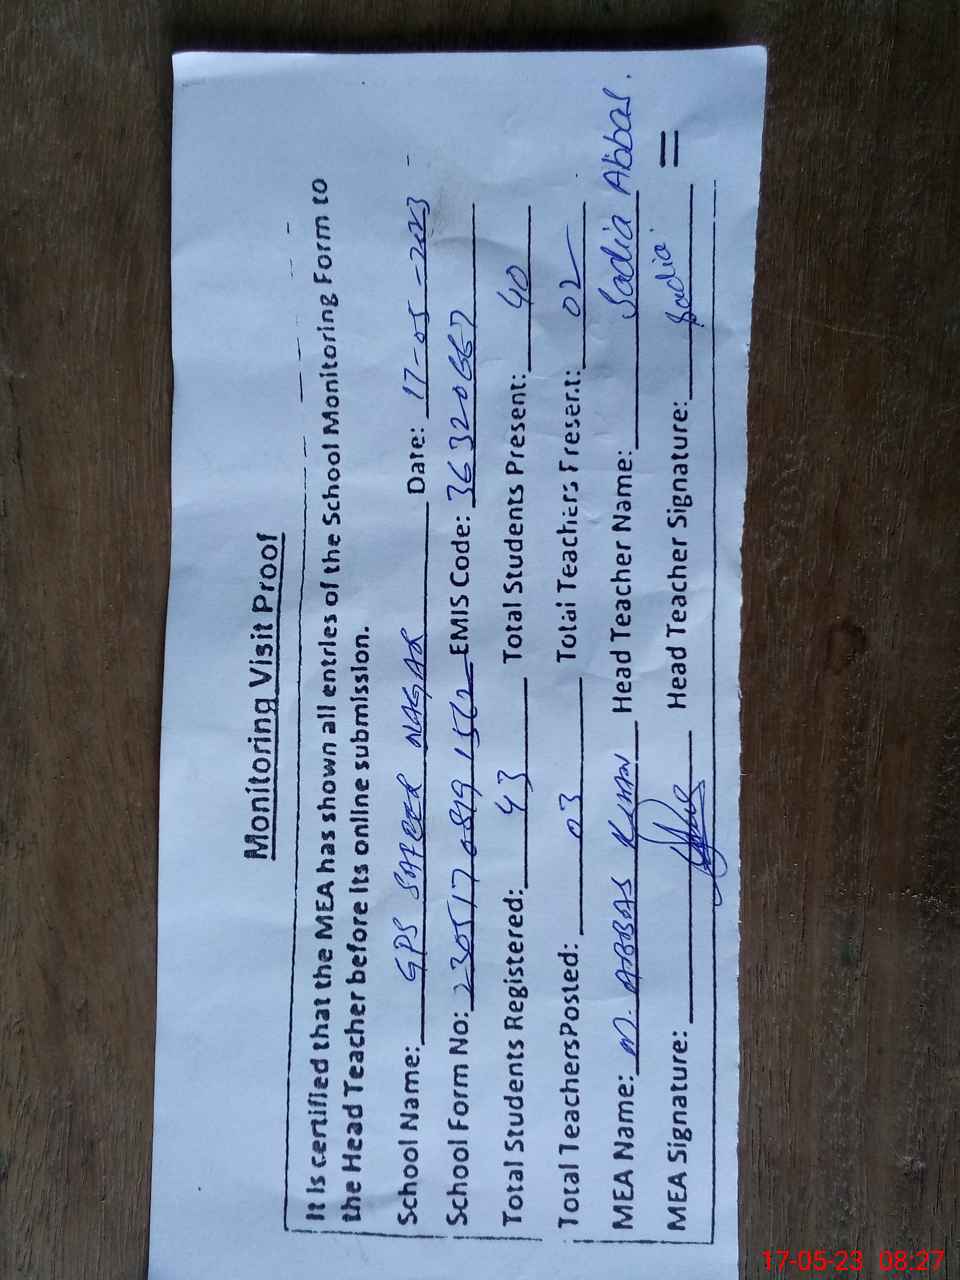 Monitoring Visit Proof
It is certified that the MEA has shown all entries of the School Monitoring Form to
the Head Teacher before its online submission.
School Name: GPS SAFEER NAGAR Date: 17-05-2023
School Form No: 230517 0819 1562 EMIS Code: 36320667
Total Students Registered: 43 Total Students Present: 40
Total Teachers Posted: 03 Total Teachers Present: 02
MEA Name: M. ABBAS KHAN Head Teacher Name: Sadia Abbas.
MEA Signature: Head Teacher Signature: Sadia
17-05-23 08:27